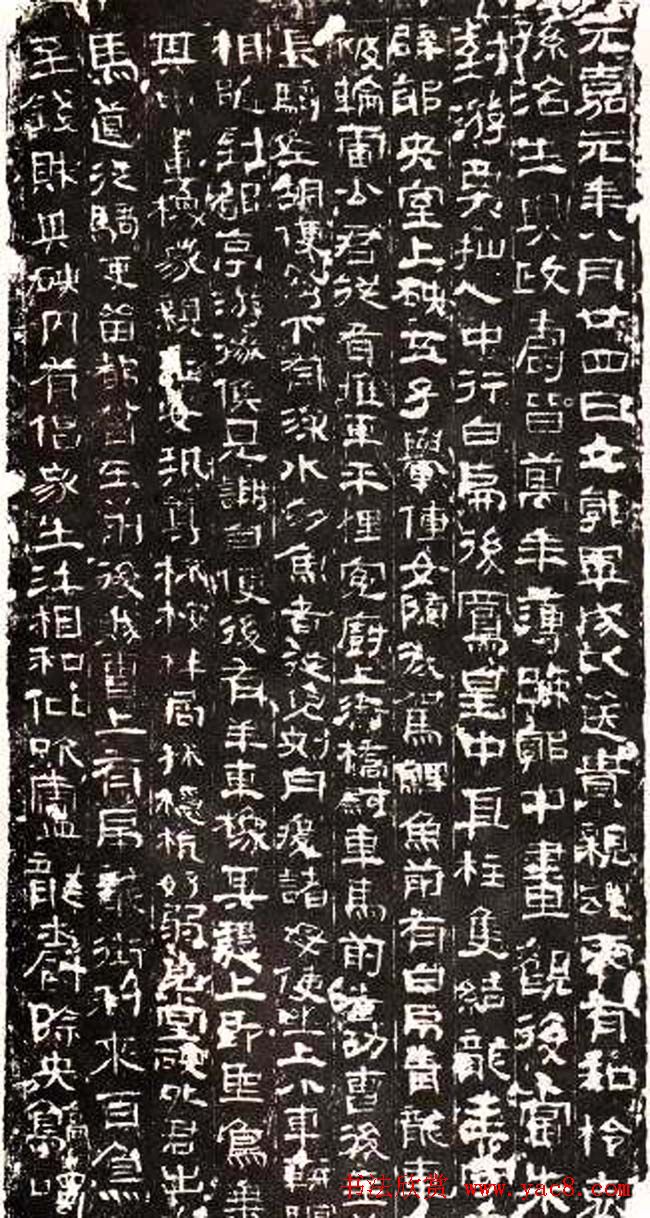 元嘉元年八月廿四日立郭畢成以送貴親魂零有知柃哀
孫治生興政壽皆萬年薄疎郭中畫觀後當朱
對游仙人中行白虎後鳳皇中直柱隻結龍主守
辟邪央室上硤五子轝僮女隨後駕鯉魚前有白虎青龍車
被輪雷公君從者推車平梩冤廚上衛橋尉車馬前者功曹後
長騎佐胡使弩下有流水多魚者從兒刺舟渡諸母使坐上小車軿驅
相隨到都亭游徼候見謝自便後有羊車橡其槥上即聖鳥乘
其中畫橡家親玉女執尊杯桉柈局秫穩杭好弱皃堂硤外君出
馬道從騎吏留都督在前後賊曹上有虎龍銜利來百鳥
至錢財其硤內有倡家生汙相和仳吹廬龍爵除央鶴噣
书法欣赏 www.yac8.com